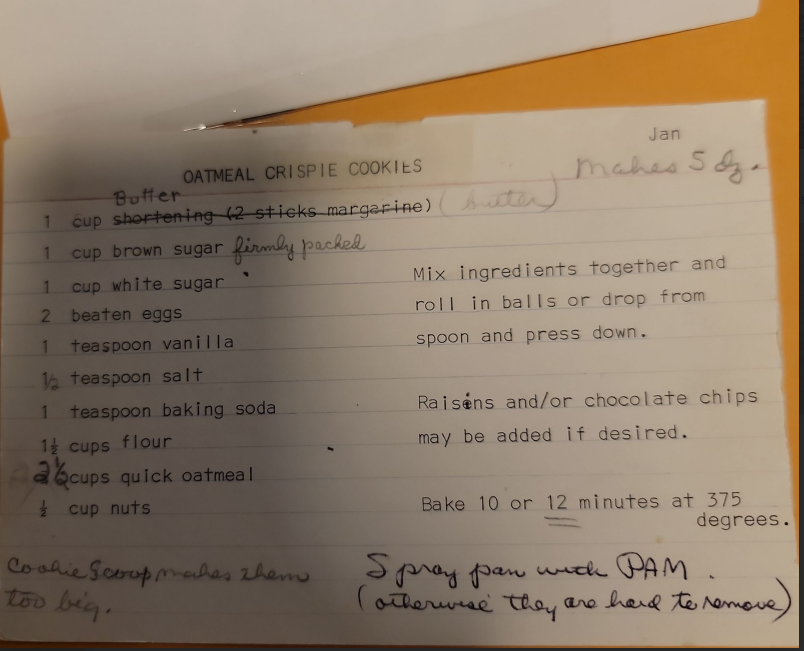 Jan
OATMEAL CRISPIE COOKIES
Makes 5 dz.
Butter
1 cup shortening (2 sticks margarine) (butter)
1 cup brown sugar firmly packed
1 cup white sugar
2 beaten eggs
1 teaspoon vanilla
1/2 teaspoon salt
1 teaspoon baking soda
1½ cups flour
2½ cups quick oatmeal
½ cup nuts
Mix ingredients together and
roll in balls or drop from
spoon and press down.
Raisins and/or chocolate chips
may be added if desired.
Bake 10 or 12 minutes at 375
degrees.
Cookie Scoop makes them
too big.
Spray pan with PAM.
(otherwise they are hard to remove)